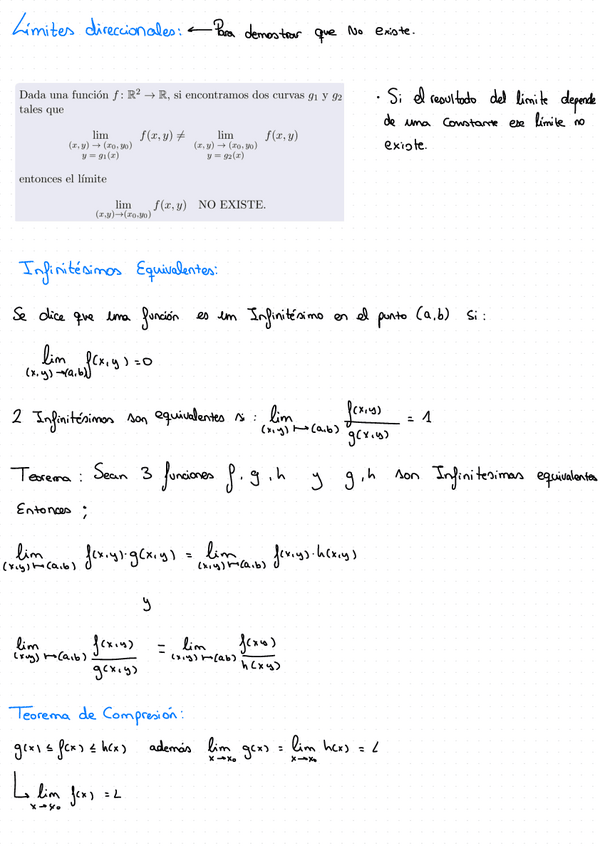 Límites direccionales: ← Para demostrar que No existe.
Dada una función f: ℝ² → ℝ, si encontramos dos curvas g₁ y g₂
tales que
lim f(x, y) ≠ lim f(x, y)
(x, y) → (x₀, y₀) (x, y) → (x₀, y₀)
y = g₁(x) y = g₂(x)
entonces el límite
lim f(x, y) NO EXISTE.
(x,y)→(x₀,y₀)
· Si el resultado del límite depende
de una constante ese límite no
existe.
Infinitésimos Equivalentes:
Se dice que una función es un Infinitésimo en el punto (a,b) si:
lim f(x,y) = 0
(x,y)→(a,b)
2 Infinitésimos son equivalentes si: lim f(x,y)/g(x,y) = 1
(x,y)↦(a,b)
Teorema: Sean 3 funciones f, g, h y g, h son Infinitesimos equivalentes
Entonces ;
lim f(x,y)·g(x,y) = lim f(x,y)·h(x,y)
(x,y)↦(a,b) (x,y)↦(a,b)
y
lim f(x,y)/g(x,y) = lim f(xy)/h(xy)
(x,y)↦(a,b) (x,y)↦(a,b)
Teorema de Compresión:
g(x) ≤ f(x) ≤ h(x) además lim g(x) = lim h(x) = L
x→x₀ x→x₀
↳ lim f(x) = L
x→x₀